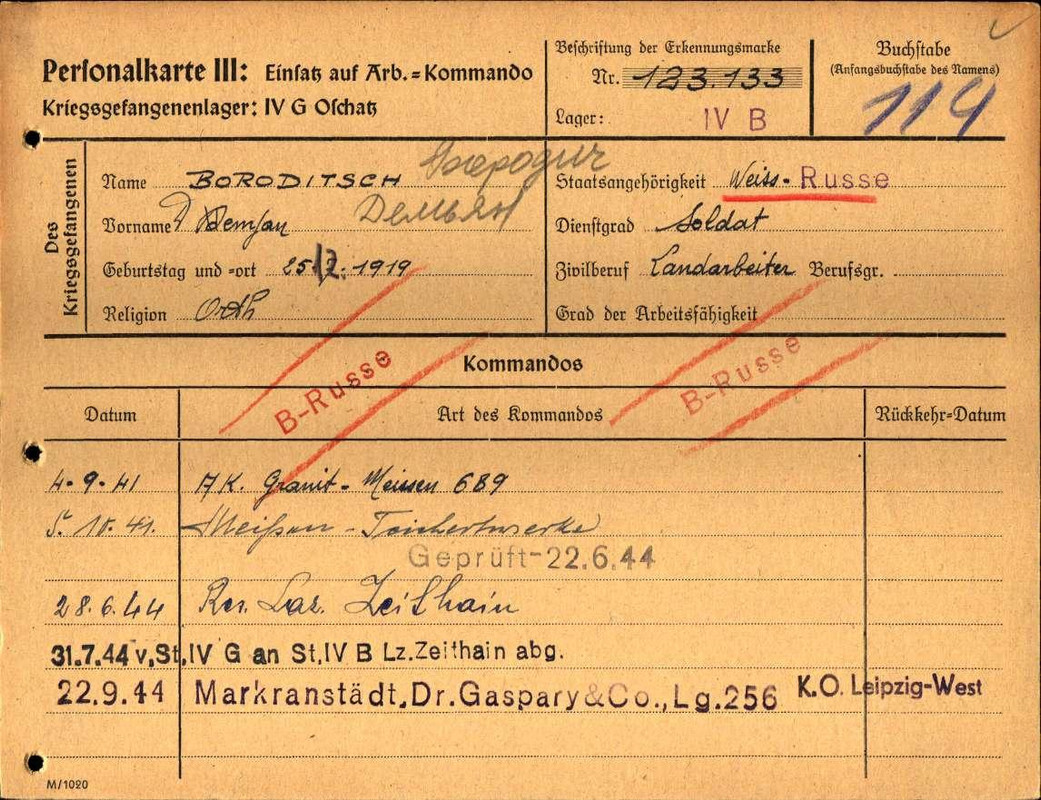 Beschriftung der Erkennungsmarke
Buchstabe
(Anfangsbuchstabe des Namens)
Personalkarte III: Einsatz auf Arb.=Kommando
Nr. 123.133
114
Kriegsgefangenenlager: IV G Oschatz
Lager: IV B
Des Kriegsgefangenen
Name BORODITSCH
Демьян
Staatsangehörigkeit Weiss-Russe
Vorname Demjan
Dienstgrad Soldat
Geburtstag und =ort 25.12.1919
Zivilberuf Landarbeiter Berufsgr.
Religion Orth
Grad der Arbeitsfähigkeit
B-Russe
B-Russe
Kommandos
Datum
Art des Kommandos
Rückkehr=Datum
4.9.41 AK. Granit-Meissen 689
5.10.41. Meißen - Teichertwerke
Geprüft-22.6.44
28.6.44 Res. Laz. Zeithain
31.7.44 v.St.IV G an St.IV B Lz.Zeithain abg.
22.9.44 Markranstädt,Dr.Gaspary&Co.,Lg.256 K.O. Leipzig-West
M/1020